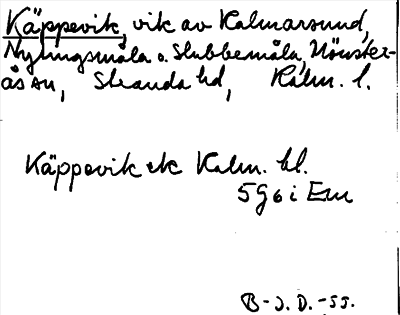 Käppevik, vik av Kalmarsund,
Nylingsmåla o. Slubbemåla, Mönster-
ås sn, Stranda hd, Kalm. l.
Käppevik ek Kalm. bl.
5 g 6 i Em
B-J. D. -55.